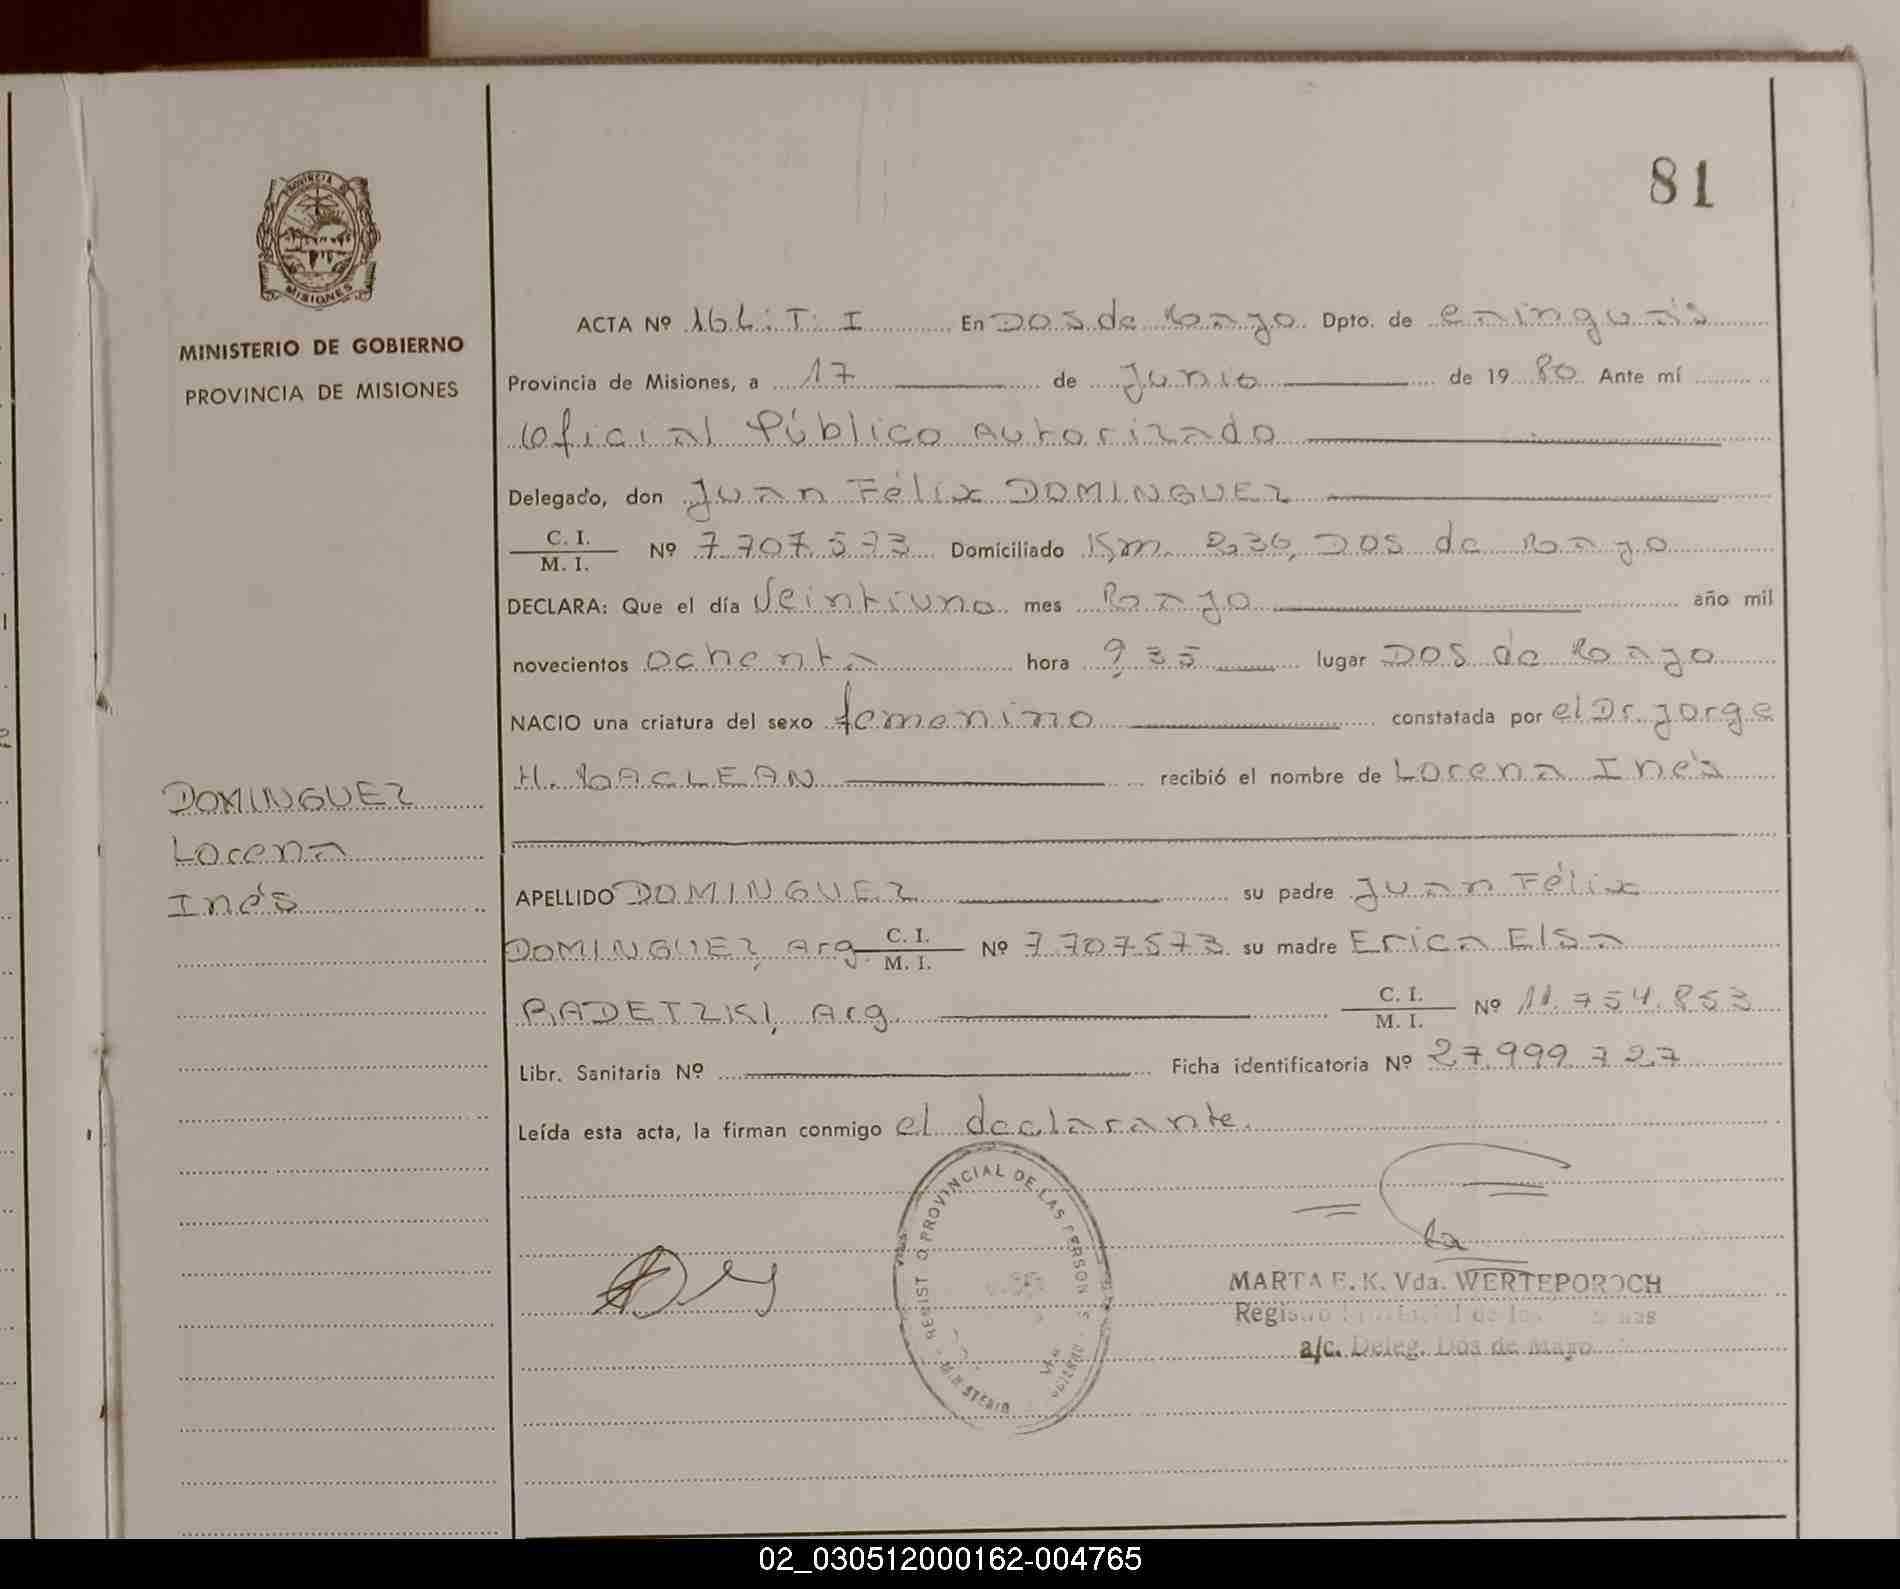 81
PROVINCIA DE
MISIONES
MINISTERIO DE GOBIERNO
PROVINCIA DE MISIONES
DOMINGUEZ
Lorena
Inés
ACTA Nº 162.T.I En Dos de Mayo Dpto. de Cainguás
Provincia de Misiones, a 17 de Junio de 1980 Ante mí
Oficial Público Autorizado
Delegado, don Juan Félix DOMINGUEZ
C. I.
M. I. Nº 7.707.573 Domiciliado Km. 236, Dos de Mayo
DECLARA: Que el día Veintiuno mes Mayo año mil
novecientos ochenta hora 9,35 lugar Dos de Mayo
NACIO una criatura del sexo femenino constatada por el Dr. Jorge
H. MACLEAN recibió el nombre de Lorena Inés
APELLIDO DOMINGUEZ su padre Juan Félix
DOMINGUEZ, Arg. C. I.
M. I. Nº 7.707.573 su madre Erica Elsa
RADETZKI, Arg. C. I.
M. I. Nº 11.754.853
Libr. Sanitaria Nº Ficha identificatoria Nº 27.999.727
Leída esta acta, la firman conmigo el declarante.
REGIST O PROVINCIAL DE LAS PERSON S
MARTA E. K. Vda. WERTEPOROCH
Registro Provincial de las
a/c. Deleg. Dos de Mayo
02_030512000162-004765